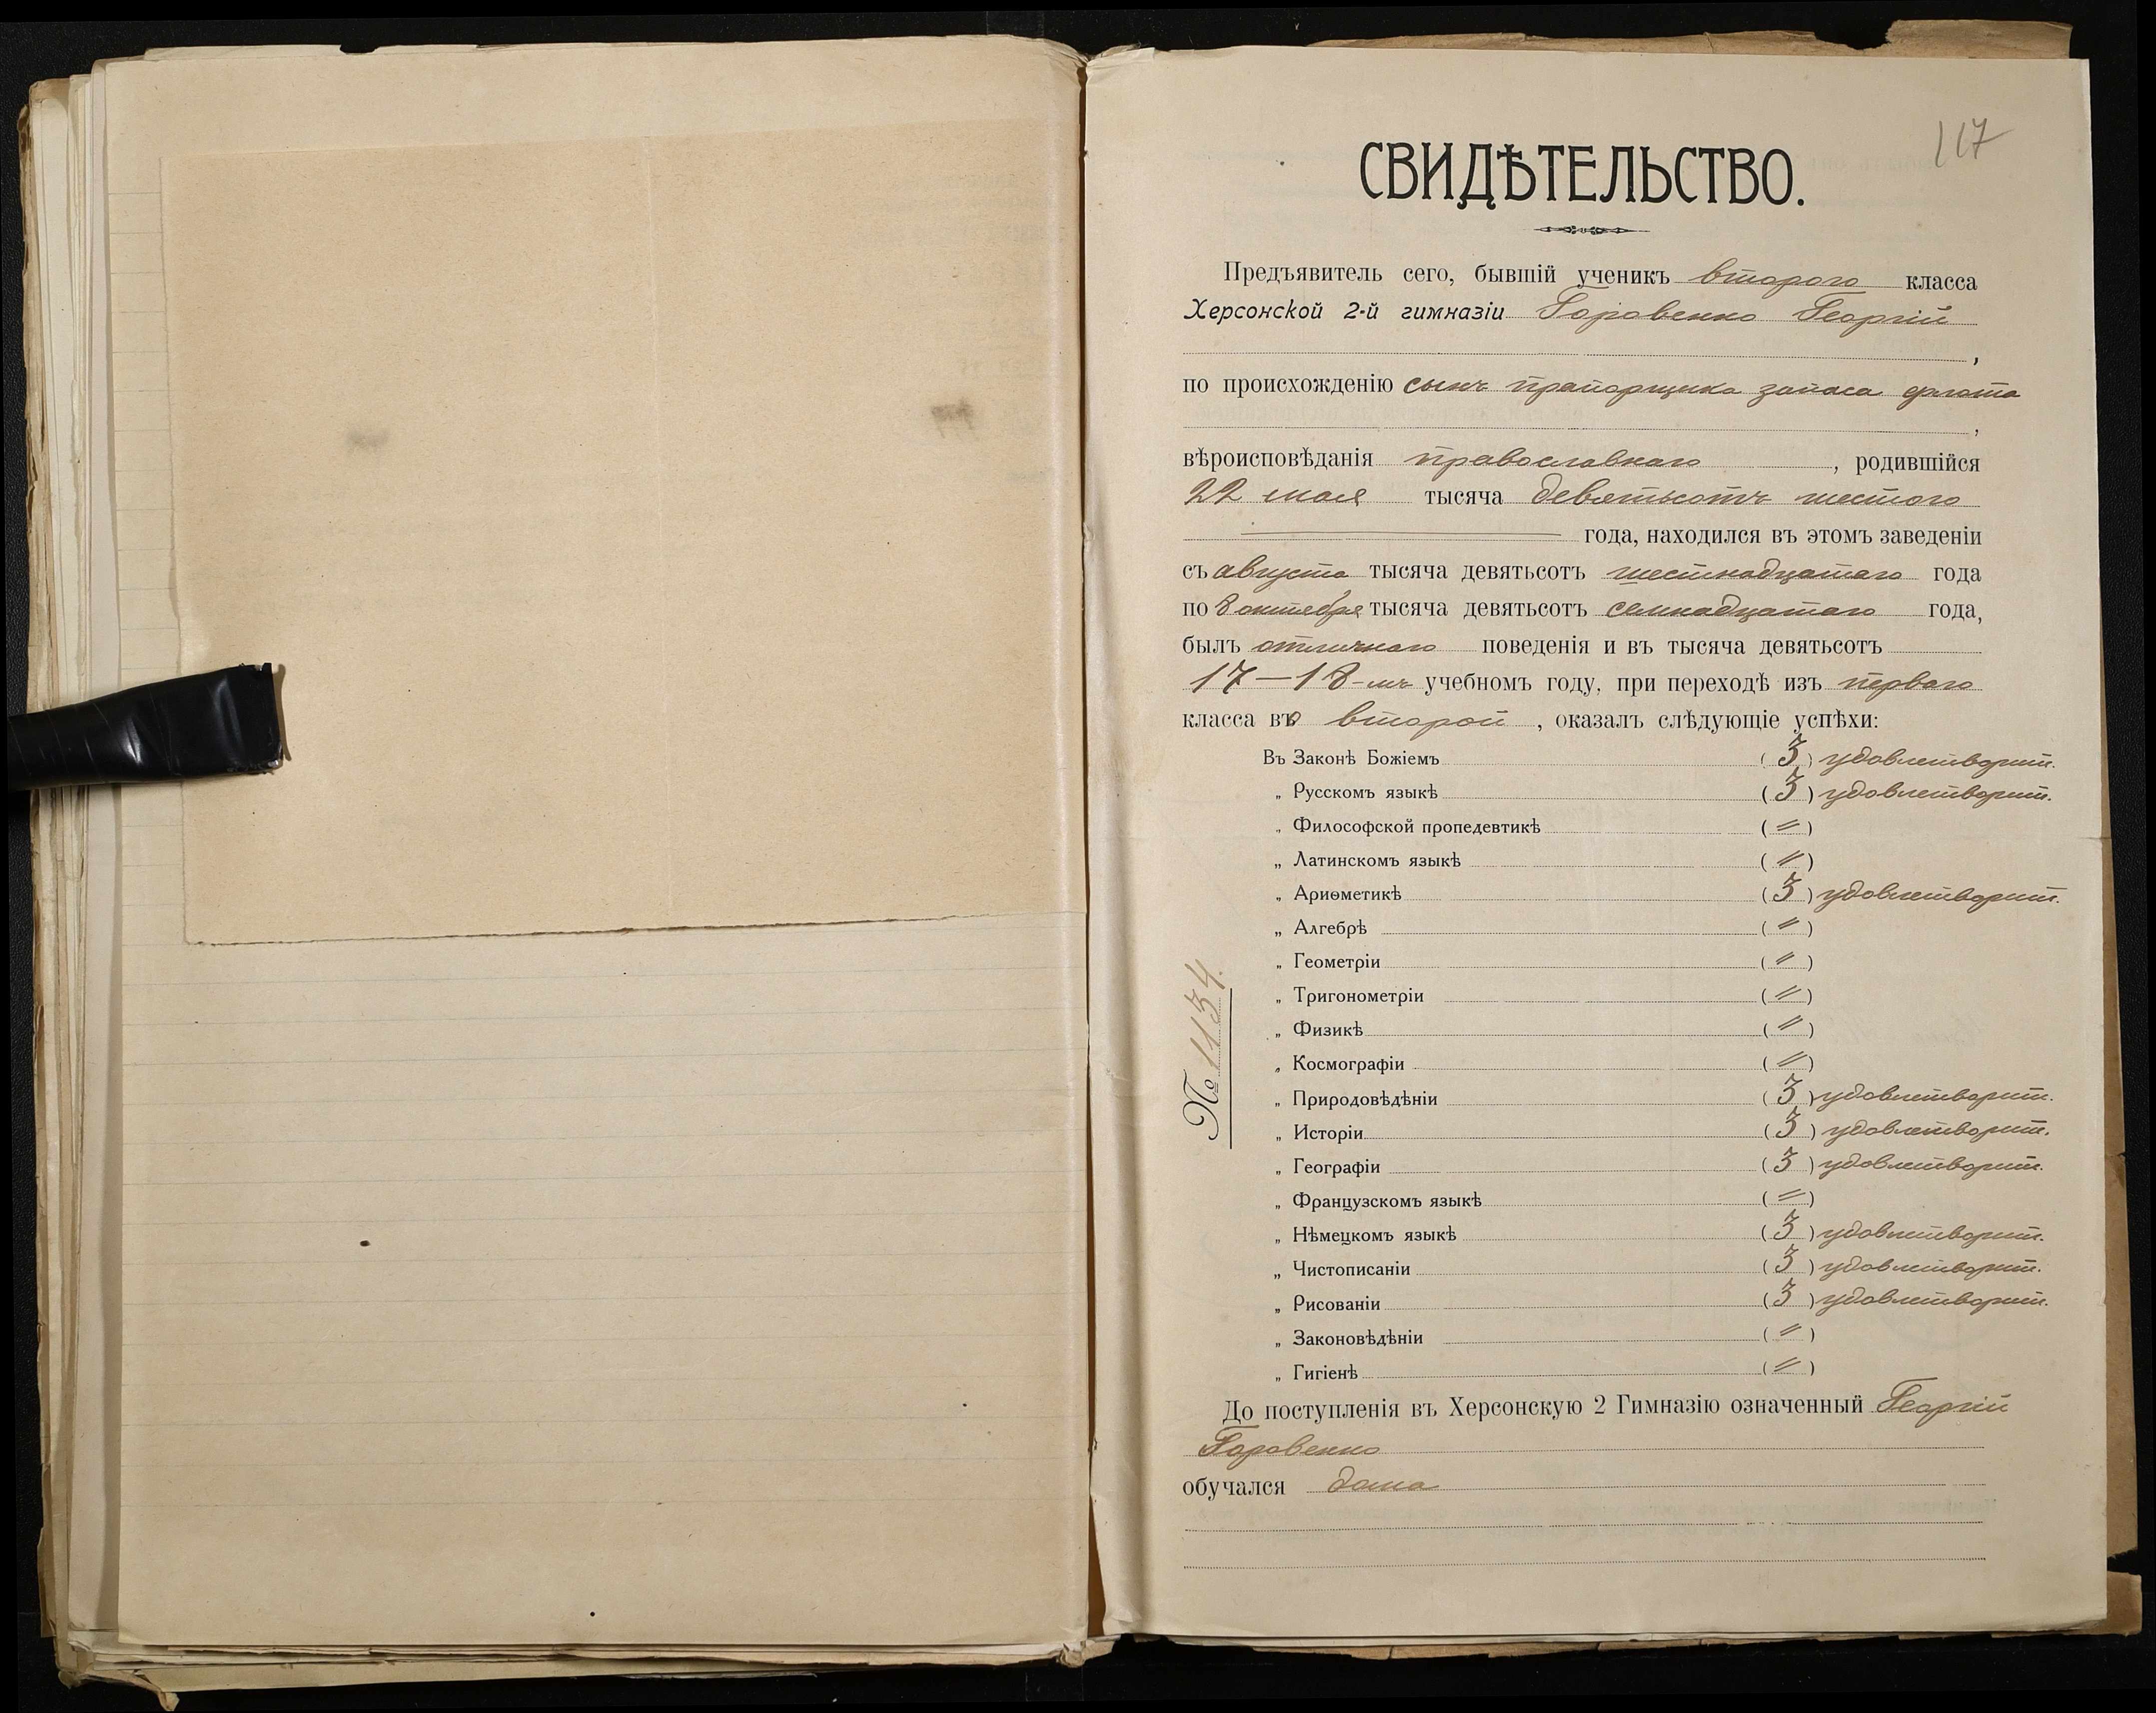 117
СВИДѢТЕЛЬСТВО.
Предъявитель сего, бывшій ученикъ второго класса
Херсонской 2-й гимназіи Горовенко Георгій
,
по происхожденію сынъ прапорщика запаса флота
,
вѣроисповѣданія православнаго, родившійся
22 мая тысяча девятьсотъ шестого
года, находился въ этомъ заведеніи
съ августа тысяча девятьсотъ шестнадцатаго года
по 8 октября тысяча девятьсотъ семнадцатаго года,
былъ отличнаго поведенія и въ тысяча девятьсотъ
17—18-мъ учебномъ году, при переходѣ изъ перваго
класса во второй, оказалъ слѣдующіе успѣхи:
Въ Законѣ Божіемъ (3) удовлетворит.
„ Русскомъ языкѣ (3) удовлетворит.
„ Философской пропедевтикѣ (〃)
„ Латинскомъ языкѣ (〃)
„ Ариѳметикѣ (3) удовлетворит.
„ Алгебрѣ (〃)
„ Геометріи (〃)
„ Тригонометріи (〃)
„ Физикѣ (〃)
„ Космографіи (〃)
„ Природовѣдѣніи (3) удовлетворит.
„ Исторіи (3) удовлетворит.
„ Географіи (3) удовлетворит.
„ Французскомъ языкѣ (〃)
„ Нѣмецкомъ языкѣ (3) удовлетворит.
„ Чистописаніи (3) удовлетворит.
„ Рисованіи (3) удовлетворит.
„ Законовѣдѣніи (〃)
„ Гигіенѣ (〃)
№ 1134.
До поступленія въ Херсонскую 2 Гимназію означенный Георгій
Горовенко
обучался дома